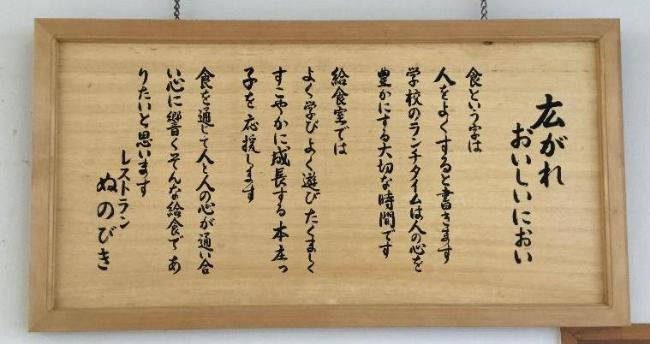 広がれ
おいしいにおい
食という字は
人をよくすると書きます
学校のランチタイムは人の心を
豊かにする大切な時間です
給食室では
よく学びよく遊びたくましく
すこやかに成長する本庄っ
子を応援します
食を通じて人と人の心が通い合
い心に響くそんな給食であ
りたいと思います
レストラン
ぬのびき